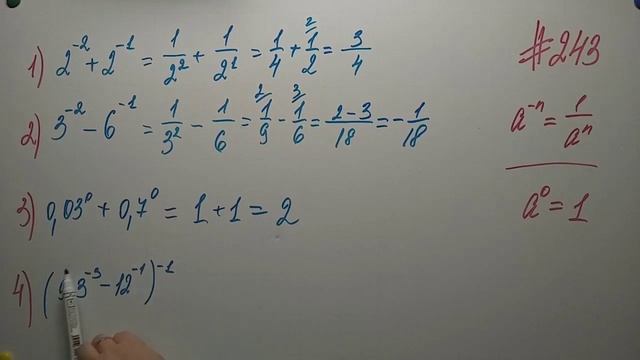 1) 2⁻² + 2⁻¹ = 1/2² + 1/2¹ = 1/4 + 1/2 ² = 3/4
2) 3⁻² - 6⁻¹ = 1/3² - 1/6 = 1/9 ² - 1/6 ³ = 2-3/18 = -1/18
3) 0,03⁰ + 0,7⁰ = 1 + 1 = 2
4) ( 3⁻³ - 12⁻¹)⁻¹
#243
a⁻ⁿ = 1/aⁿ
a⁰ = 1